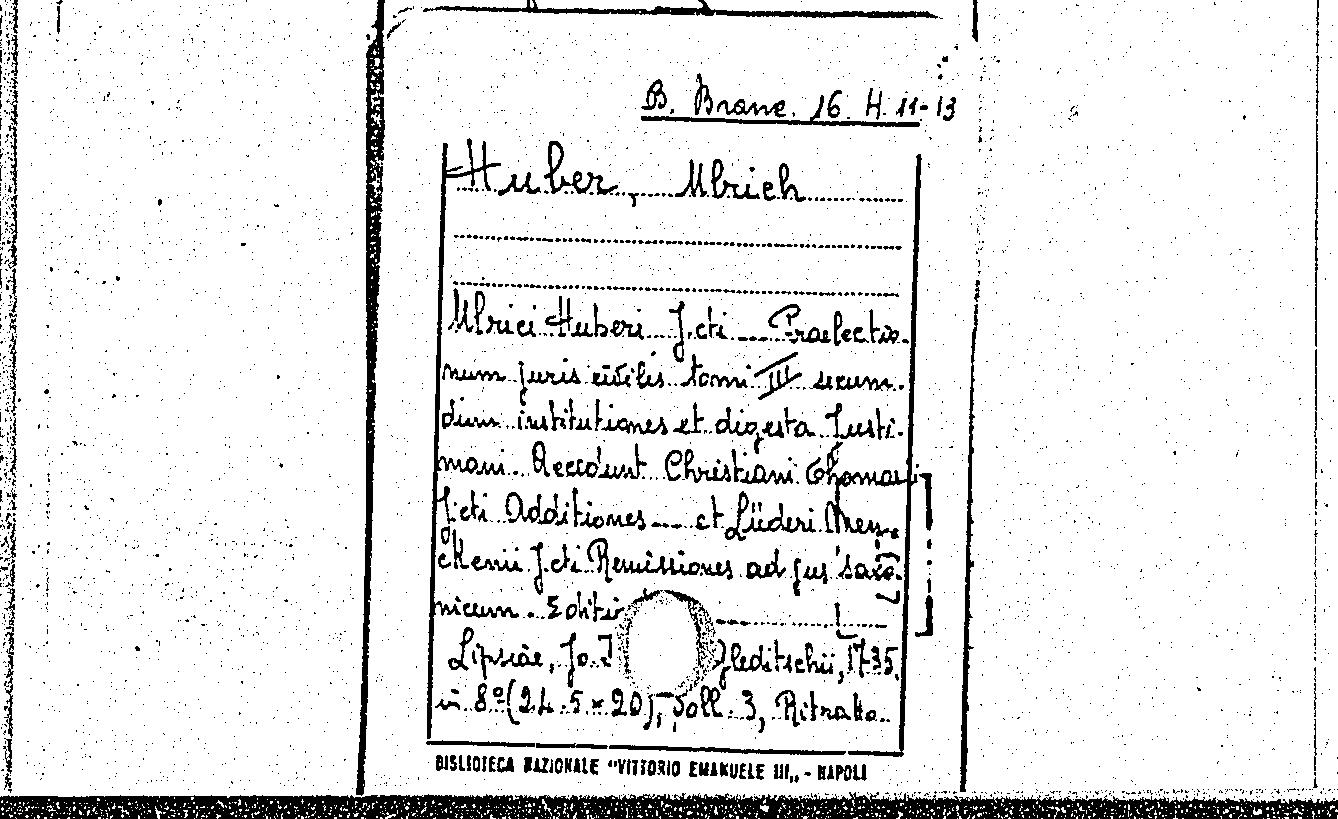 B. Branc. 16. H. 11-13
Huber, Ulrich
Ulrici Huberi J.cti ... Praelectio-
num juris civilis tomi III secum-
dum institutiones et digesta Justi-
niani. Accedunt Christiani Thomasii
J.cti Additiones ... et Lüderi Men-
ckenii J.cti Remissiones ad jus saxo-
nicum. Editio
Lipsiae, Jo. Gleditschii, 1735.
in 8º (24.5 x 20), voll. 3, Ritratto.
BIBLIOTECA NAZIONALE "VITTORIO EMANUELE III„ - NAPOLI